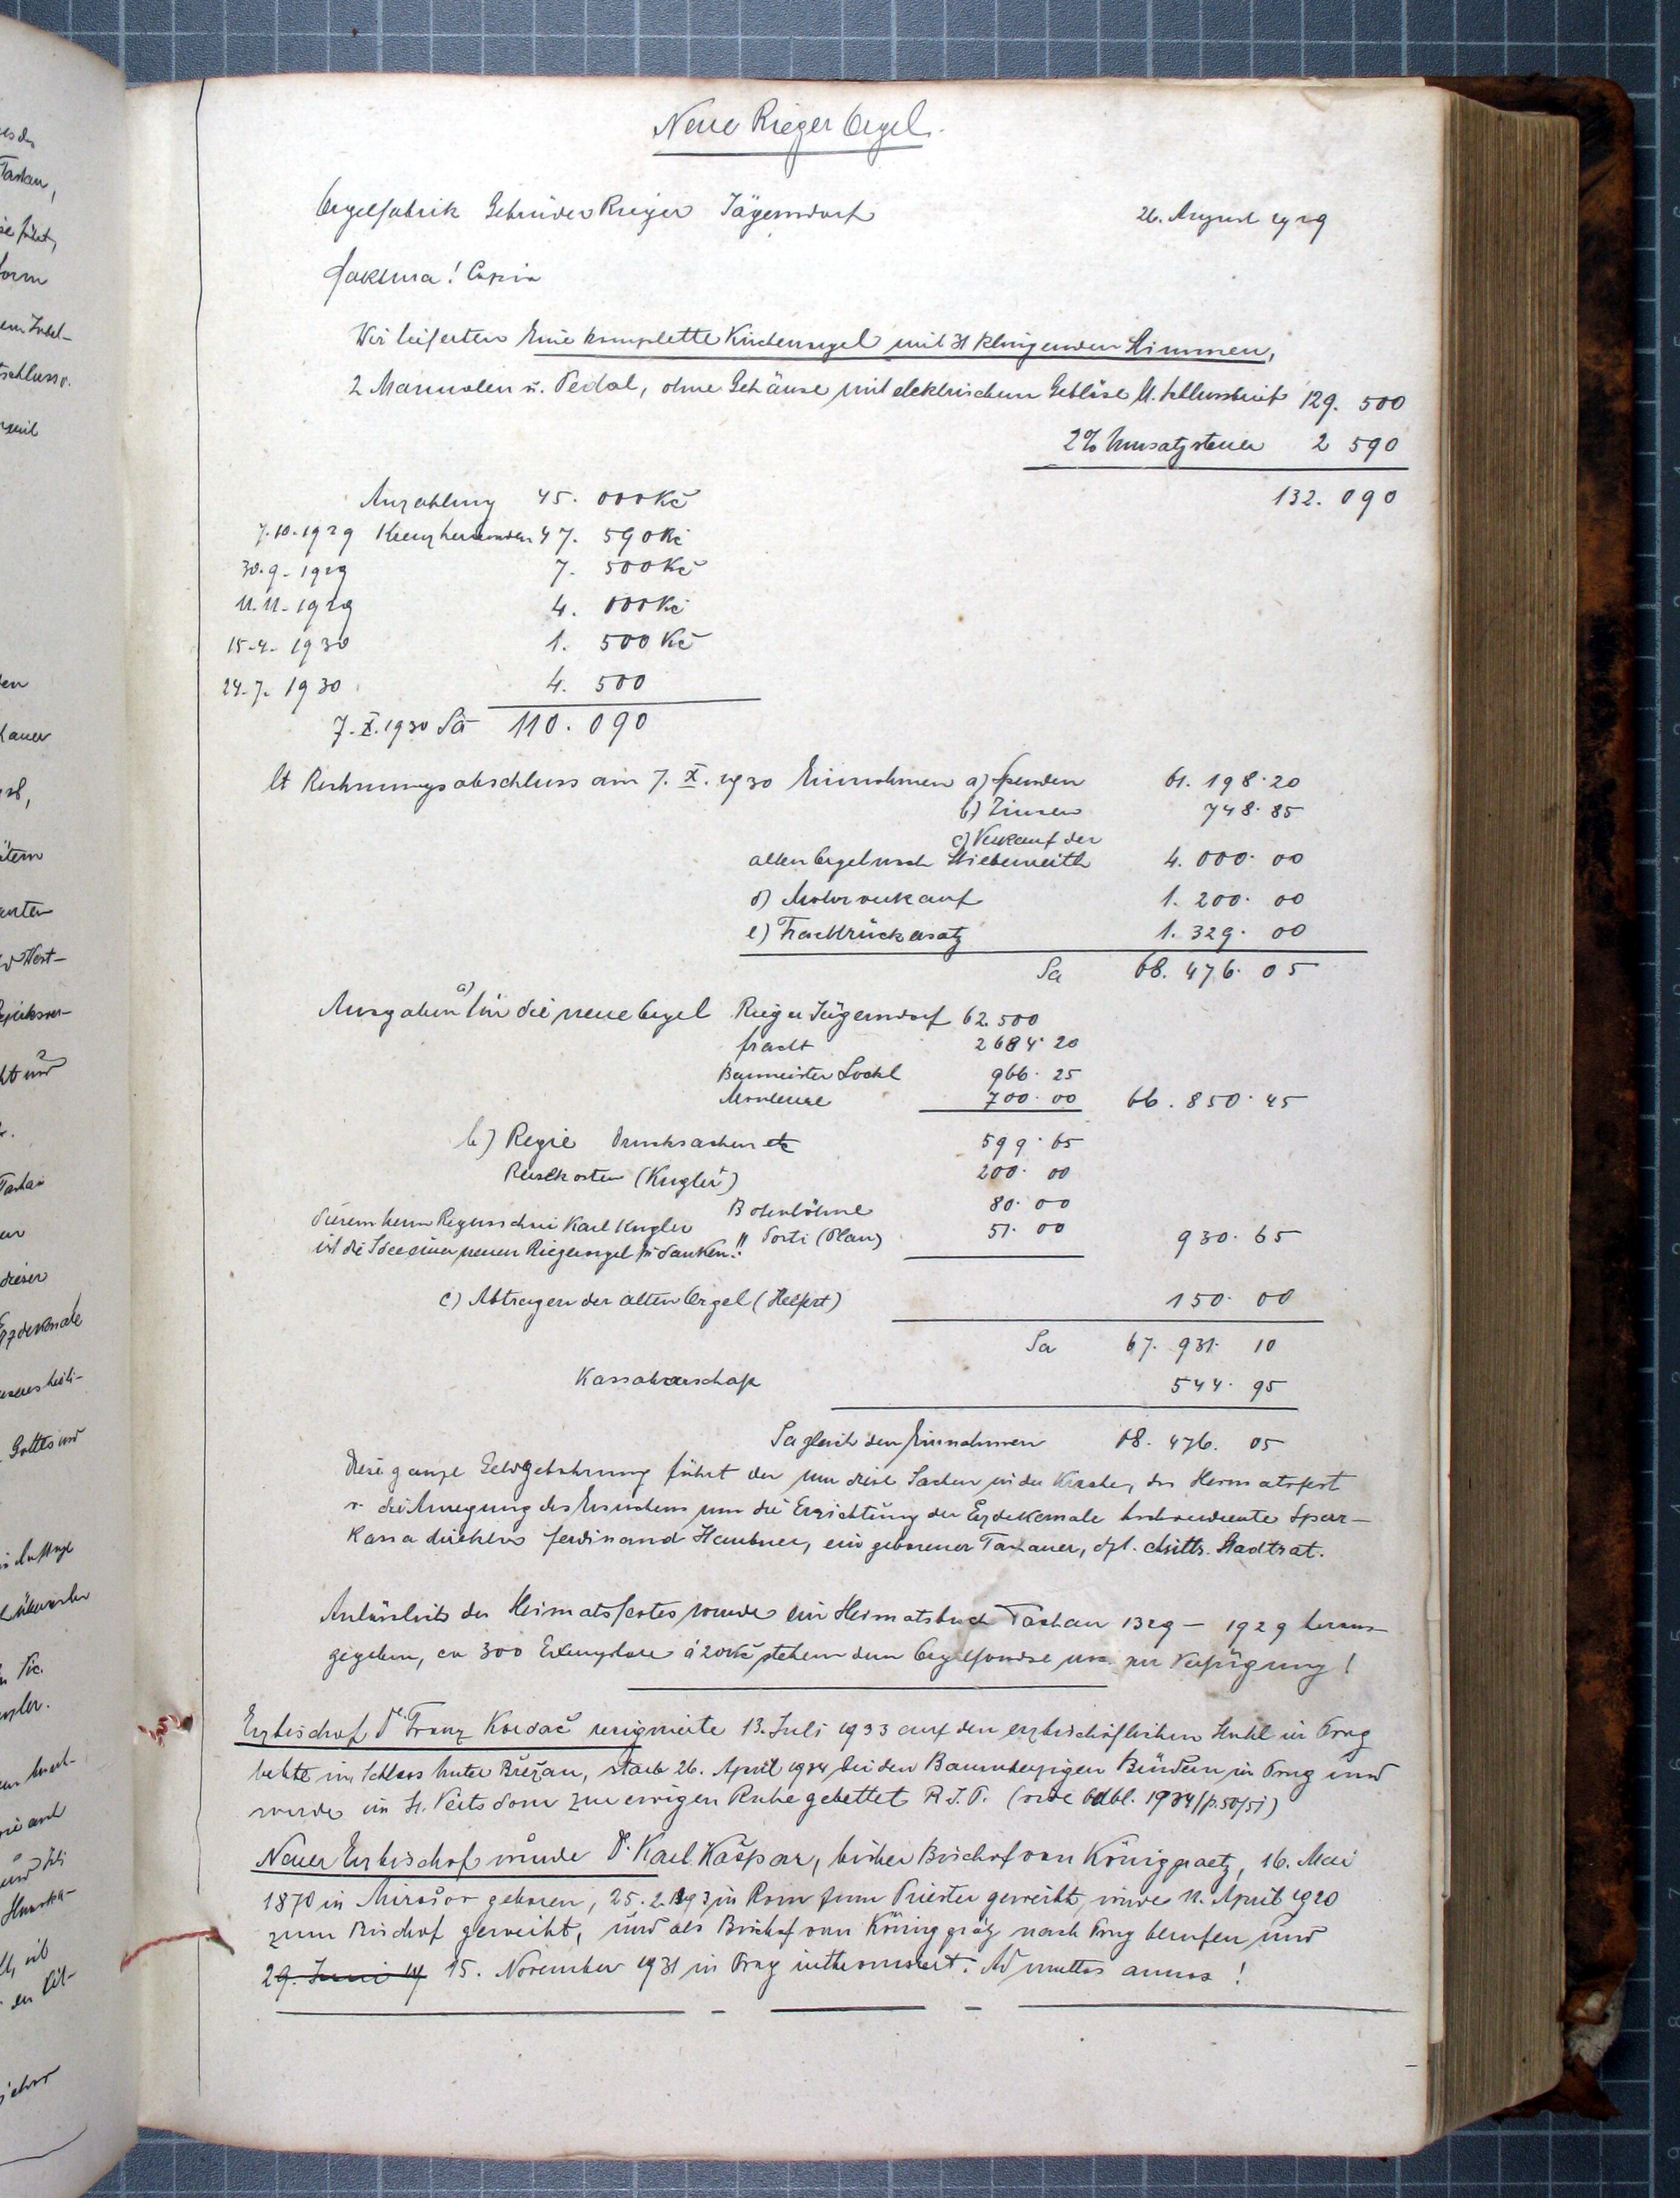 Neue Rieger Orgel.
Orgelfabrik Gebrüder Rieger Jägerndorf 26. August 1929
Faktura! Copia
Wir lieferten Eine komplette Kirchenorgel mit 31 klingenden Stimmen,
2 Manualen u. Pedal, ohne Gehäuse mit elektrischem Gebläse lt. Schlussbrief 129. 500
2% Umsatzsteuer 2 590
132. 090
Anzahlung 45. 000 Kč
7.10.1929 Kreuzherrenorden 47. 590 Kč
30.9.1929 7. 500 Kč
11.11.1929 4. 000 Kč
15.4.1930 1. 500 Kč
24.7.1930 4. 500
7.X.1930 Sa 110. 090
lt Rechnungsabschluss am 7.X.1930 Einnahmen a) Spenden 61. 198. 20
b) Zinsen 748. 85
c) Verkauf der
alten Orgel nach 4. 000. 00
d) Motorverkauf 1. 200. 00
e) Frachtrückersatz 1. 329. 00
Sa 68. 476. 05
Ausgaben a) für die neue Orgel Rieger Jägerndorf 62.500
Fracht 2684. 20
Baumeister Lockl 966. 25
Monteure 700. 00 66. 850. 45
b) Regie Drucksachen etc 599. 65
Reisekosten (Kugler) 200. 00
Botenlöhne 80. 00
diesem Herrn Regenschori Karl Kugler
Porti (Plan) 51. 00 930. 65
ist die Idee einer neuen Riegerorgel zu danken!!
c) Abtragen der alten Orgel (Helfert) 150. 00
Sa 67. 931. 10
Kassabarschaft 544. 95
Sa gleich den Einnahmen 68. 476. 05
Diese ganze Geldgebahrung führt der um diese Sachen in der Kirche, das Heimatsfest
u. die Anregung des Ersuchens um die Errichtung der Erzdekanale hochverdiente Spar-
kassadirektor Ferdinand Haubner, ein geborener Tachauer, dzt. christls. Stadtrat.
Anlässlich des Heimatsfestes wurde ein Heimatsbuch Tachau 1329 - 1929 heraus-
gegeben, ca 300 Exemplare á 20 Kč stehen dem Orgelfondse zur Verfügung!
Erzbischof Dr. Franz Kordač resignierte 13. Juli 1933 auf den erzbischöflichen Stuhl in Prag
lebte im Schloss Unter Břežan, starb 26. April 1934 bei den Barmherzigen Brüdern in Prag und
wurde im St. Veitsdom zur ewigen Ruhe gebettet R.I.P. (vide Odbl. 1934/p.50/51)
Neuer Erzbischof wurde Dr. Karl Kašpar, bisher Bischof von Königgraetz, 16. Mai
1870 in Mirošov geboren, 25.2.1893 in Rom zum Priester geweiht, wurde 11. April 1920
zum Bischof geweiht, und als Bischof von Königgrätz nach Prag berufen und
29. Juni 19 15. November 1931 in Prag inthronisiert. Ad multos annos!